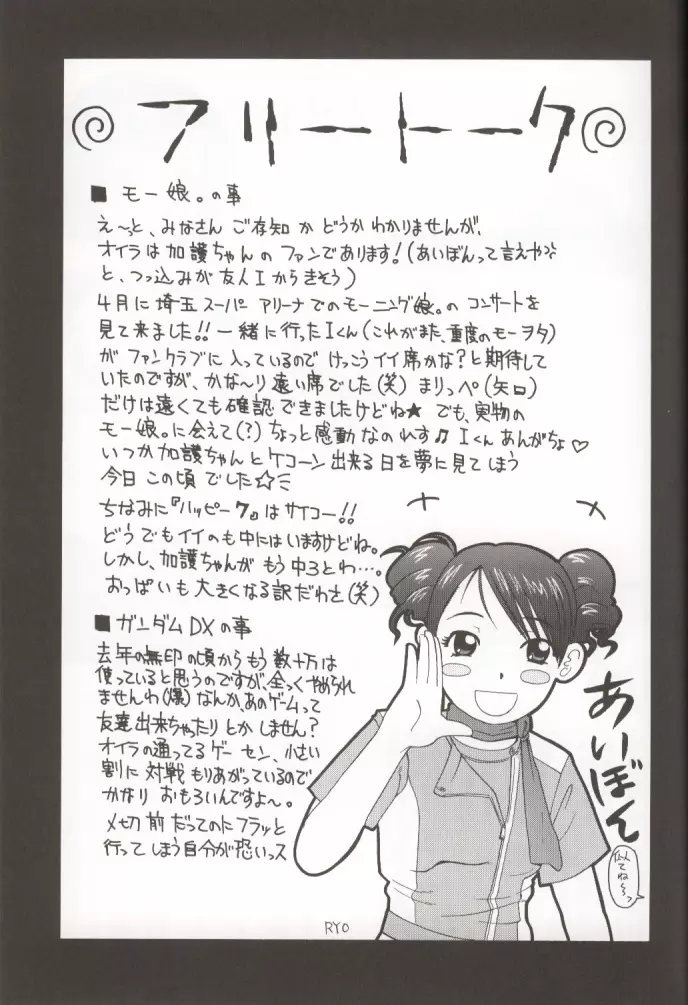 フリートーク
■ モー娘。の事
え〜っと、みなさん ご存知 か どうか わかりませんが、
オイラは 加護ちゃん の ファンであります!(あいぼんって言えや
と、つっ込みが 友人 I から きそう)
4月に 埼玉 スーパー アリーナ でのモーニング娘。の コンサートを
見て来ました!! 一緒に行った Iくん(これがまた、重度のモーヲタ)
が ファンクラブに 入っているので けっこう イイ席かな?と期待して
いたのですが、かな〜り 遠い席でした(笑) まりっぺ(矢口)
だけは遠くても確認 できましたけどね★ でも、実物の
モー娘。に会えて(?)ちょっと感動 なのれす♫ Iくん あんがちょ♡
いつか 加護ちゃんと ケコーン 出来る日を夢に見て しまう
今日 この頃 でした☆ミ
ちなみに『ハッピー7』は サイコー!!
どうでもイイのも中にはいますけどね。
■ ガンダム DX の事
去年の無印の頃から もう 数十万は
使っていると 思うのですが、全っく やめられ
ませんわ(爆) なんか、あのゲームって
友達 出来ちゃったり とか しません?
オイラの 通ってる ゲー セン、小さい
割に 対戦 もりあがっているので
かなり おもろいんですよ〜。
〆切 前 だってのに フラッと
行って しまう 自分が 恐いっス
あいぼん
似てね〜っ
RYO